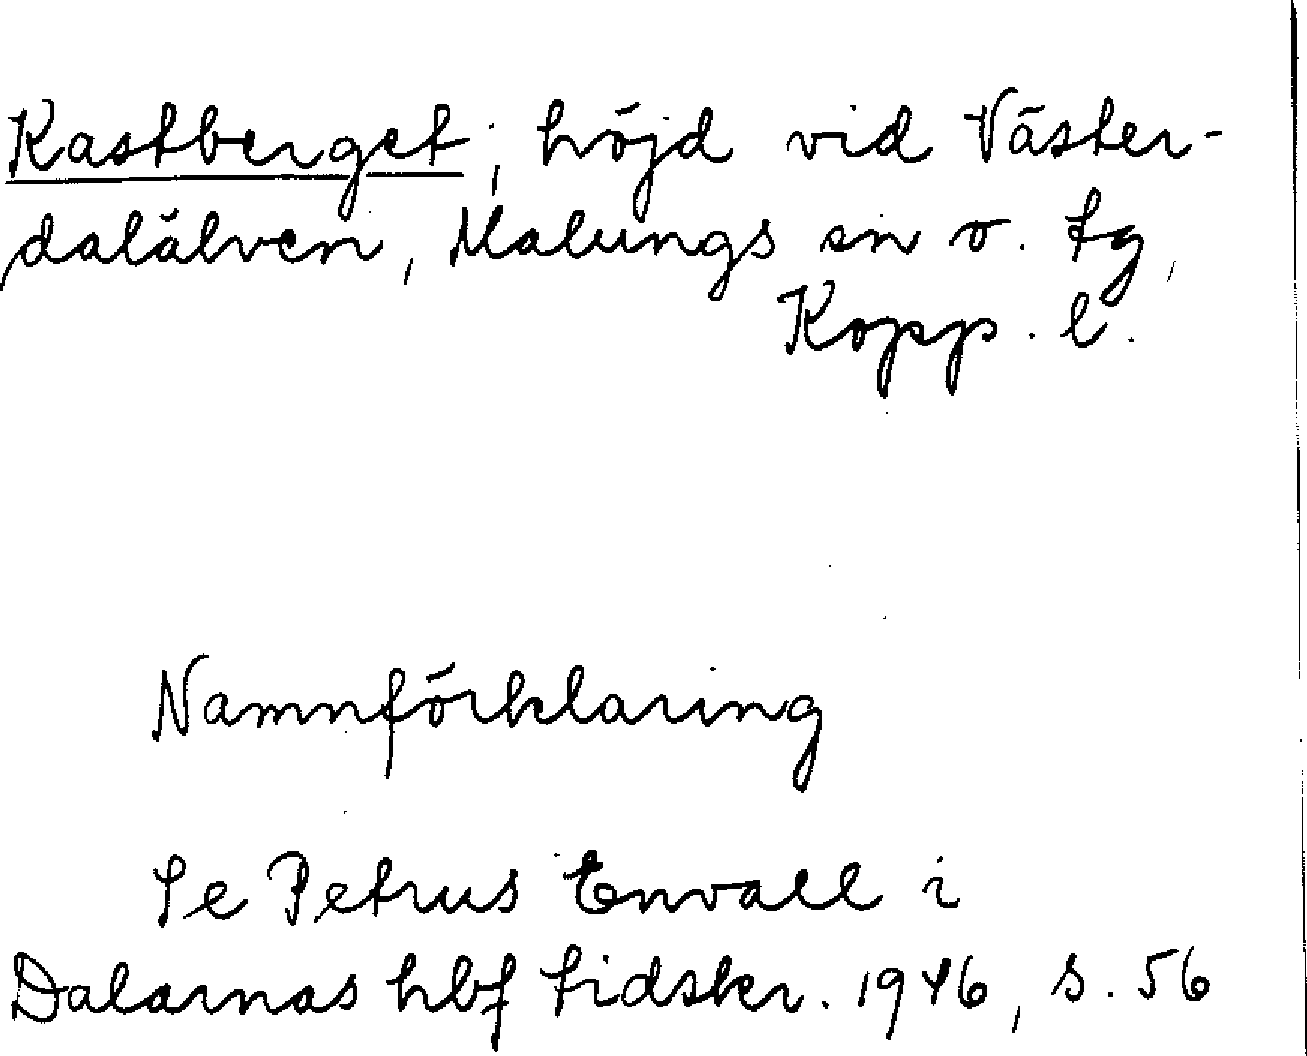 Kastberget, höjd vid Väster-
dalälven, Malungs sn o. tg,
Kopp. l.
Namnförklaring
Se Petrus Envall i
Dalarnas hbf tidskr. 1946, s. 56